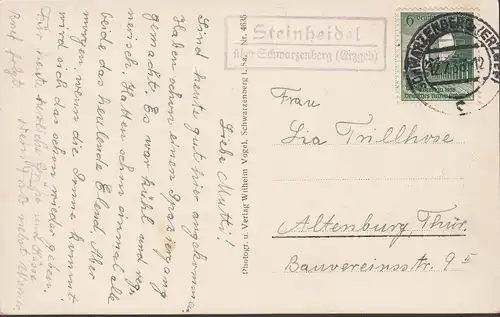 Steinheidel
über Schwarzenberg (Erzgeb)
6
SCHWARZENBERG (ERZGEB)
Liebe Mutti!
Sind heute gut hier angekommen.
Haben schon einen Spaziergang
gemacht. Es war kühl und reg-
nerisch. Hatten schon einmal alle
beide das heulende Elend. Aber
morgen wenn die Sonne kommt
wird sich das schon wieder geben.
Für heute herzliche Grüße und
Brief folgt
Photogr. u. Verlag Wilhelm Vogel, Schwarzenberg i. Sa. Nr. 4635
Frau
Lia Trillhose
Altenburg, Thür.
Bauvereinsstr. 9